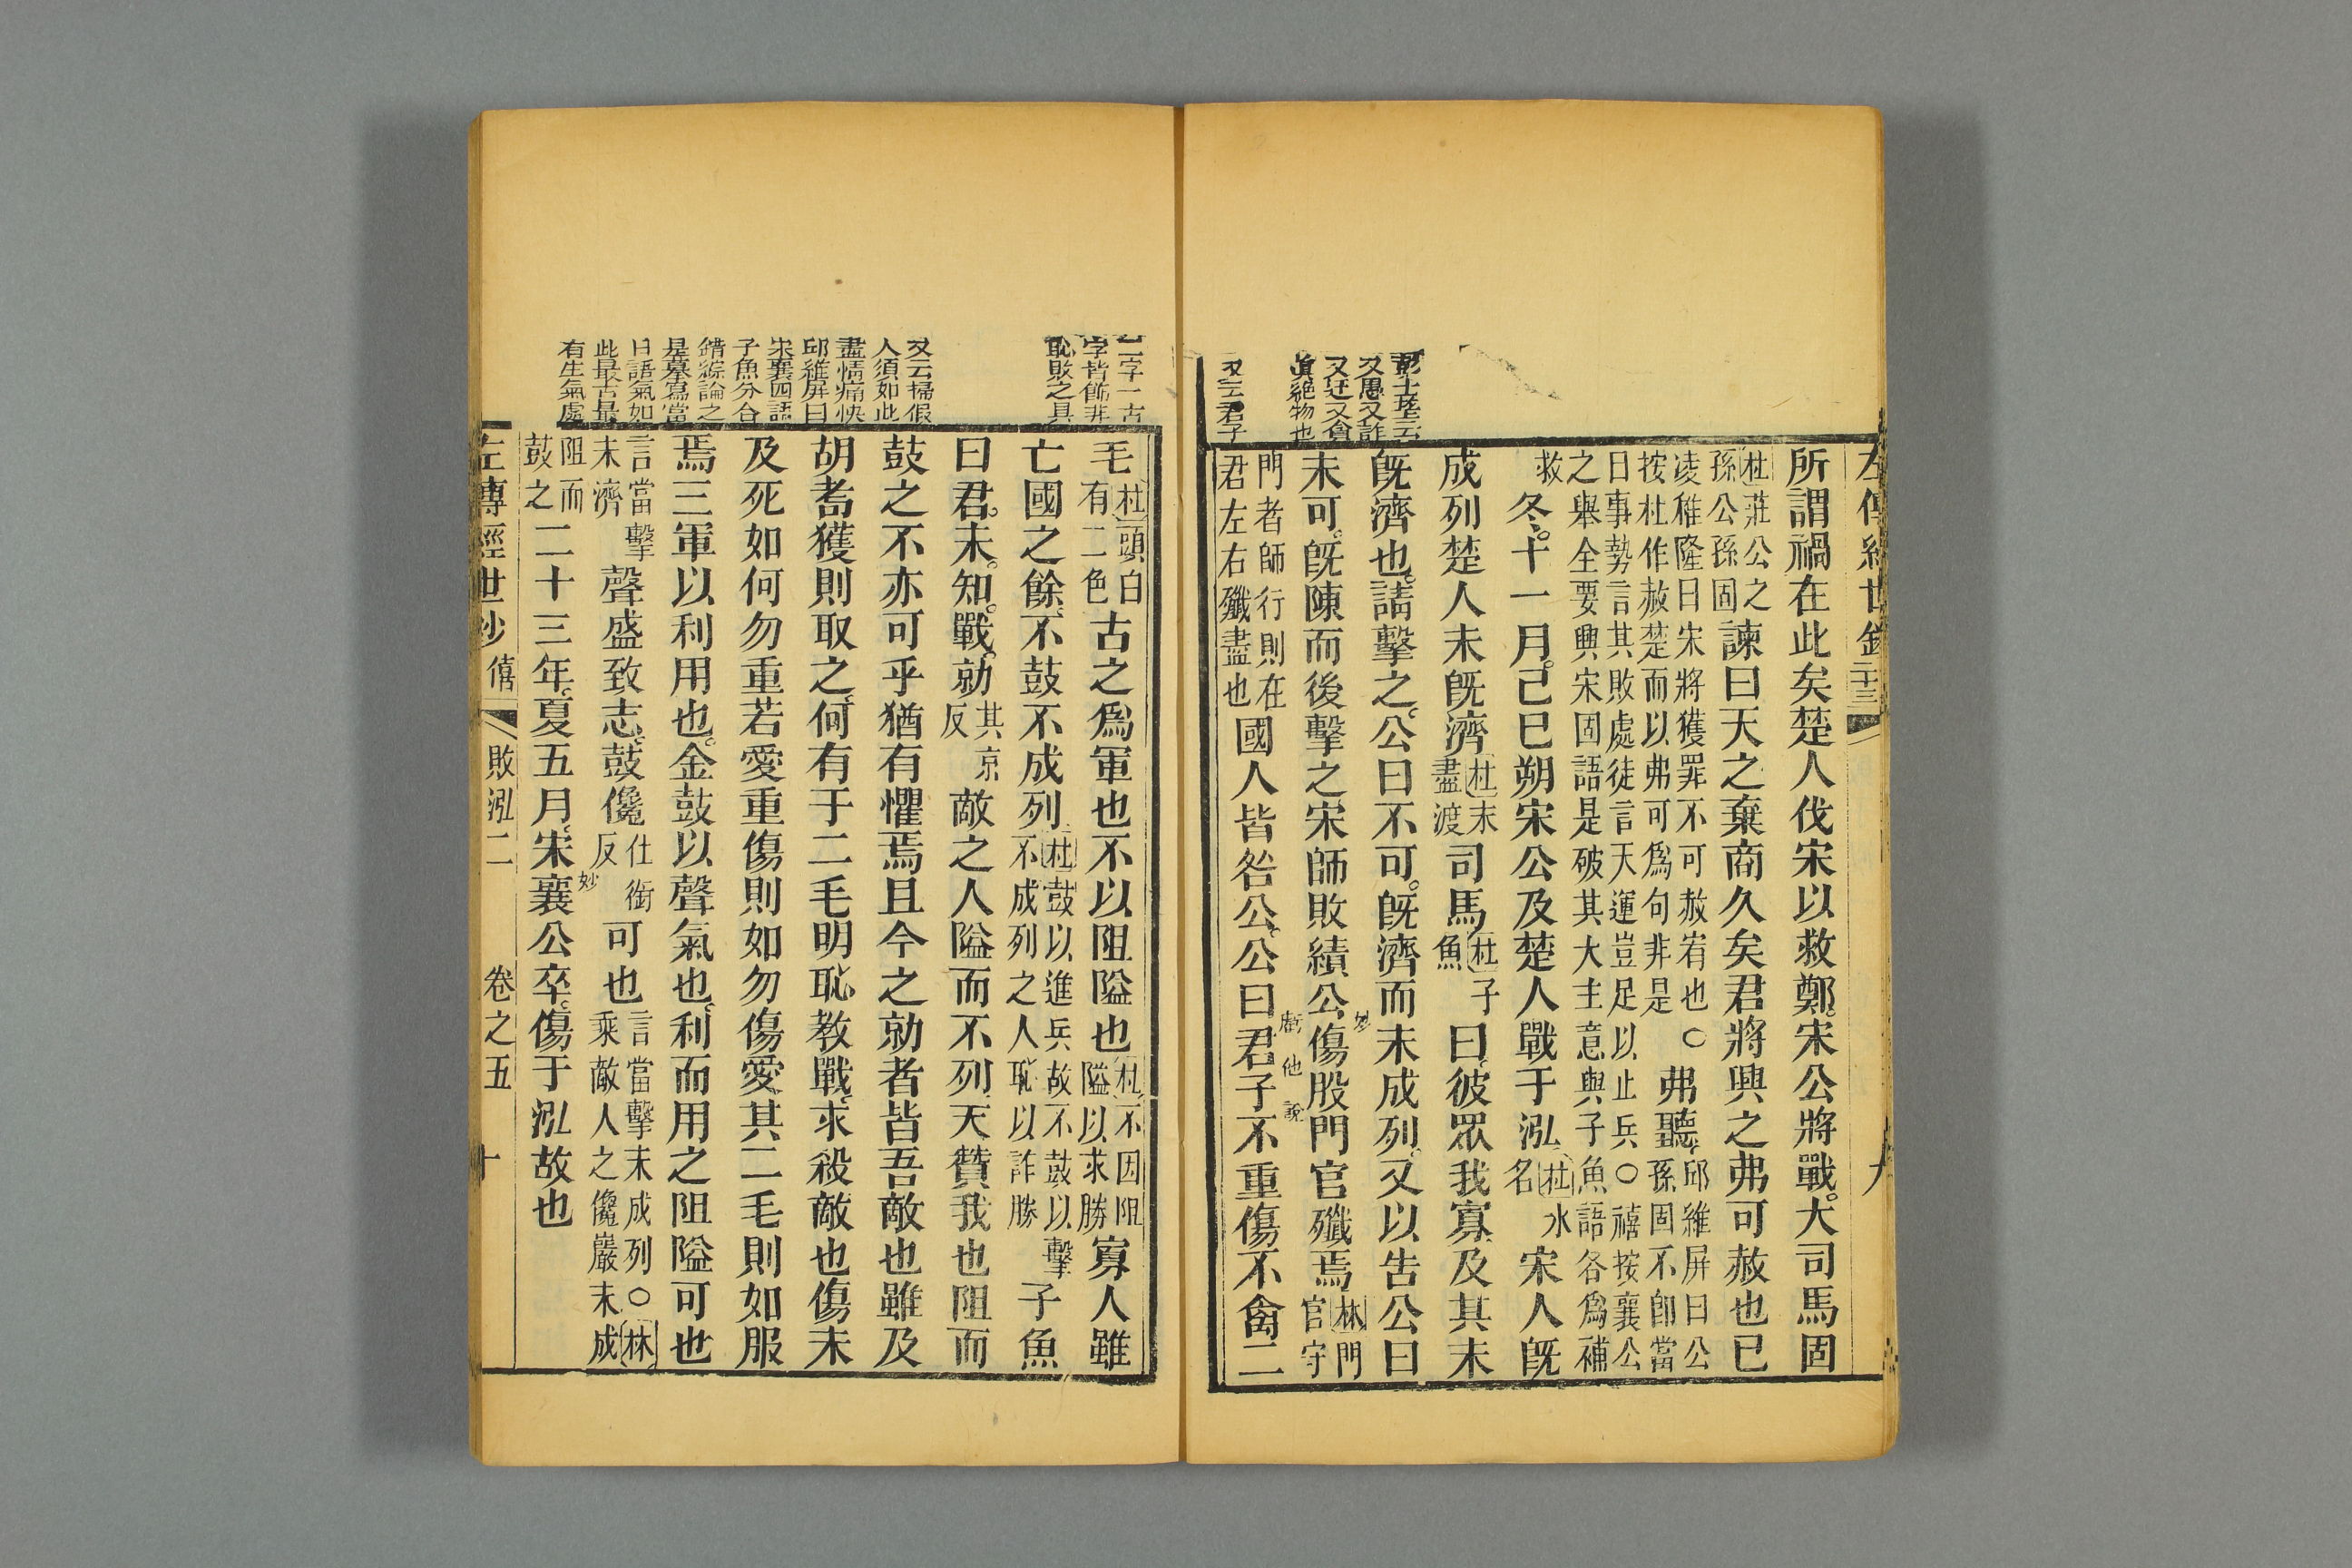 所謂禍在此矣楚人伐宋以救鄭宋公將戰大司馬固
杜莊公之孫公孫固諫曰天之棄商久矣君將興之弗可赦也已
凌稚隆曰宋將獲罪不可赦宥也〇按杜作赦楚而以弗可爲句非是弗聽邱維屏曰公孫固不卽當
日事勢言其敗處徒言天運豈足以止兵〇禧按襄公之舉全要興宋固語是破其大主意與子魚語各爲補
救
冬十一月己巳朔宋公及楚人戰于泓杜水名宋人旣
成列楚人未旣濟杜未盡渡司馬杜子魚曰彼眾我寡及其未
旣濟也請擊之公曰不可旣濟而未成列又以告公曰
未可旣陳而後擊之宋師敗績公傷股門官殲焉林門官守
妙
門者師行則在君左右殲盡也國人皆咎公公曰君子不重傷不禽二
戲他說
彭士望云
又愚又詐
又迂又會
眞絕物也
又云君子
毛杜頭白有二色古之爲軍也不以阻隘也杜不因阻隘以求勝寡人雖
亡國之餘不鼓不成列杜鼓以進兵故不鼓以擊不成列之人恥以詐勝子魚
曰君未知戰勍其京反敵之人隘而不列天贊我也阻而
鼓之不亦可乎猶有懼焉且今之勍者皆吾敵也雖及
胡耇獲則取之何有于二毛明恥教戰求殺敵也傷未
及死如何勿重若愛重傷則如勿傷愛其二毛則如服
焉三軍以利用也金鼓以聲氣也利而用之阻隘可也
言當擊未濟聲盛致志鼓儳仕銜反可也言當擊未成列〇林乘敵人之儳巖未成
阻而鼓之二十三年夏五月宋襄公卒傷于泓故也
妙
二字一古
字皆飾非
恥敗之具
又云掃假
人須如此
盡情痛快
邱維屏曰
宋襄四語
子魚分合
錯綜論之
是摹寫當
日語氣如
此最古最
有生氣處
左傳經世鈔 僖 敗泓二 卷之五 十